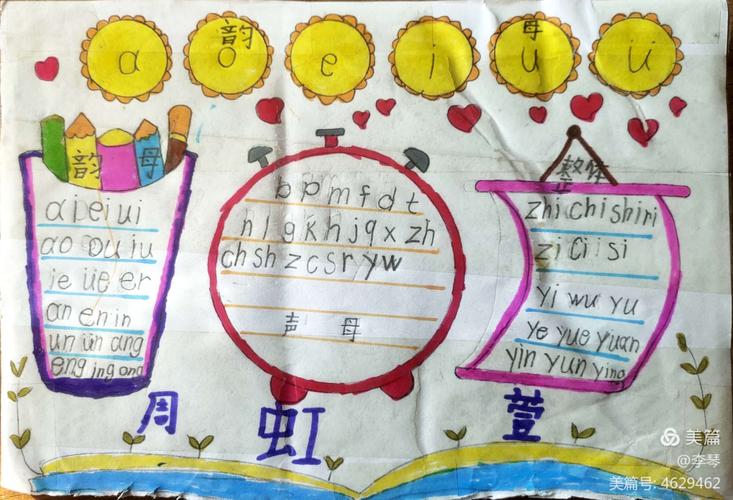 韵 母
a o e i u ü
韵 母
ai ei ui
ao ou iu
ie üe er
an en in
un ün ang
eng ing ong
b p m f d t
n l g k h j q x zh
ch sh z c s r y w
声 母
整体
zhi chi shi ri
zi ci si
yi wu yu
ye yue yuan
yin yun ying
周 虹 萱
美篇
@李琴
美篇号: 4629462